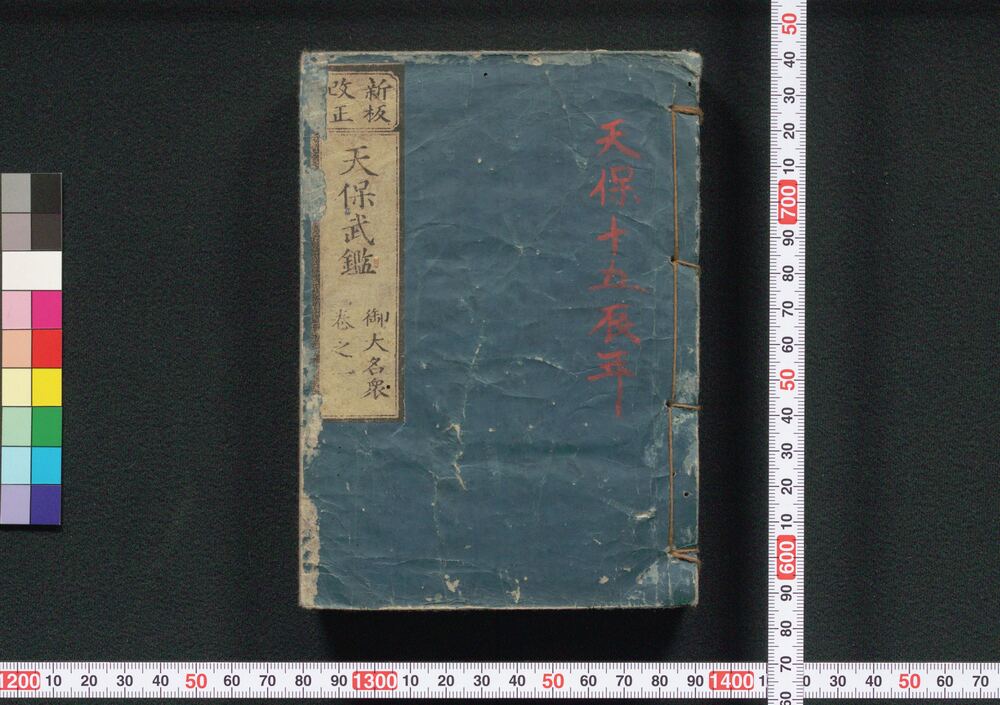 天保十五辰年
新板
改正
天保武鑑
御大名衆
卷之一
50
40
30
20
10
700
90
80
70
60
50
40
30
20
10
600
90
80
70
60
1200 10 20 30 40 50 60 70 80 90 1300 10 20 30 40 50 60 70 80 90 1400 1
0 30 40 50 60 70